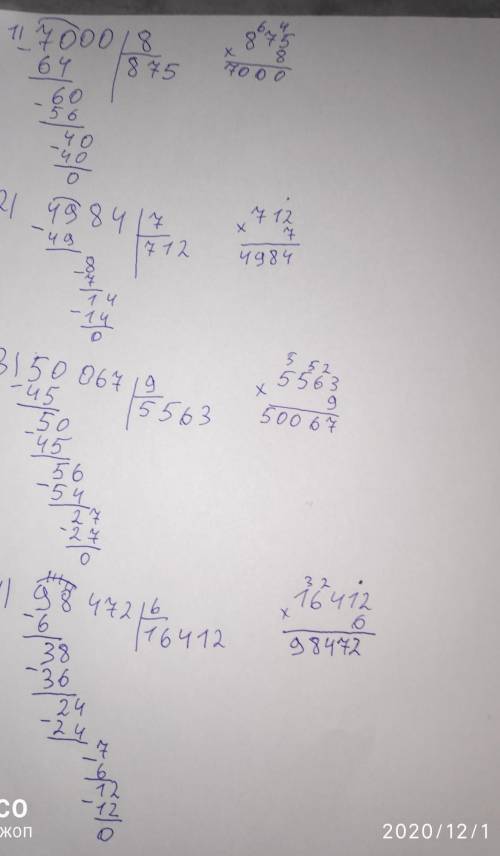 1) 7000 | 8
- 64 | 875
60
- 56
40
- 40
0
6 4
875
× 8
7000
2) 4984 | 7
- 49 | 712
8
- 7
14
- 14
0
712
× 7
4984
3) 50067 | 9
- 45 | 5563
50
- 45
56
- 54
27
- 27
0
5 5 2
5563
× 9
50067
) 98472 | 6
- 6 | 16412
38
- 36
24
- 24
7
- 6
12
- 12
0
3 2
16412
× 6
98472
СО
жоп
2020/12/1